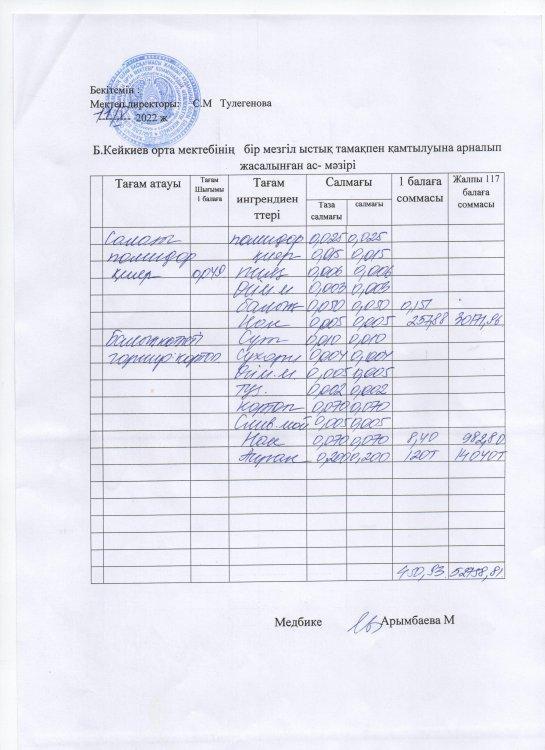 Бекітемін :
Мектеп директоры: С.М Тулегенова
2022 ж
Б.Кейкиев орта мектебінің бір мезгіл ыстық тамақпен қамтылуына арналып
жасалынған ас- мәзірі
Тағам атауы Тағам Шығымы 1 балаға Тағам ингрендиенттері Салмағы 1 балаға соммасы Жалпы 117 балаға соммасы
Таза салмағы салмағы
Салат помидор 0,025 0,025
помидор қияр 0,015 0,015
қияр пияз 0,006 0,006
Өсім.м 0,003 0,003
балық 0,050 0,050
Нан 0,005 0,005
Сүт 0,010 0,010
гарнир картоп Сухари 0,004
Өсім.м 0,005 0,005
тұз. 0,002 0,002
Картоп 0,070 0,070
Слив май 0,005 0,005
Нан 0,070 0,070 8,40 982,80
Айран 0,200 0,200 120т 14040т
450,93 52758,81
Медбике Арымбаева М